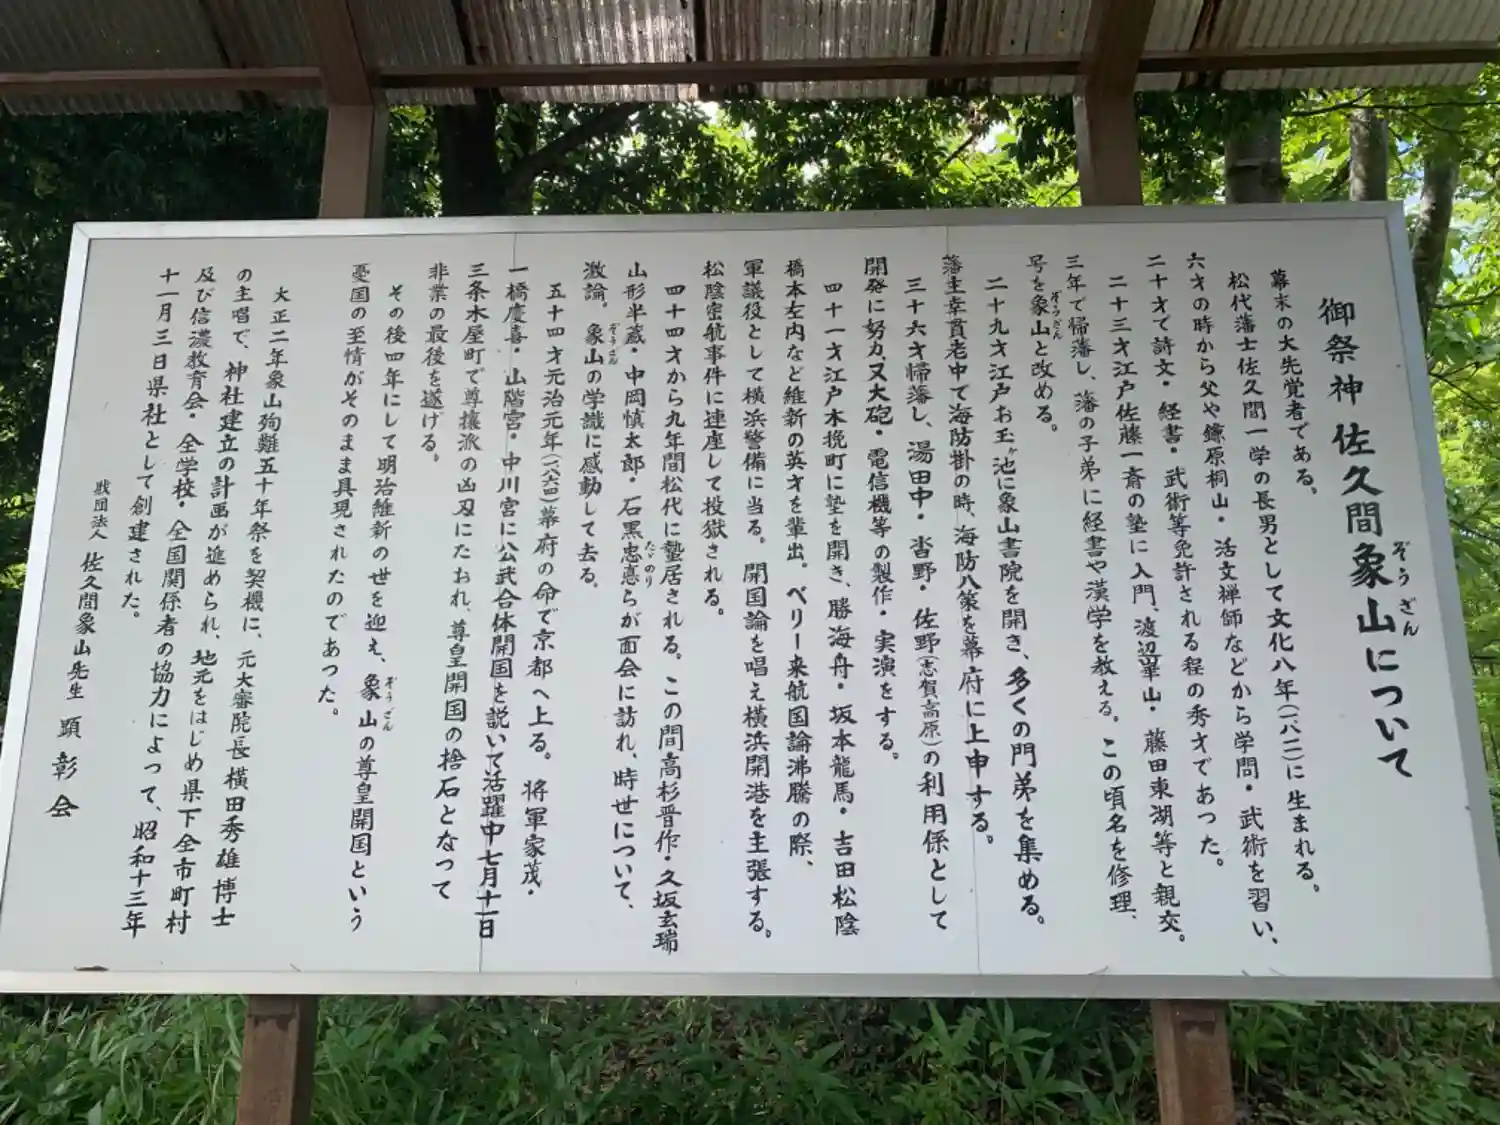 御祭神佐久間象山について
ぞうざん
幕末の大先覚者である。
松代藩士佐久間一学の長男として文化八年(一八一一)に生まれる。
六才の時から父や鎌原桐山・活文禅師などから学問・武術を習い、
二十才で詩文・経書・武術等免許される程の秀才であった。
二十三才江戸佐藤一斎の塾に入門、渡辺崋山・藤田東湖等と親交。
三年で帰藩し、藩の子弟に経書や漢学を教える。この頃名を修理、
号を象山と改める。
ぞうざん
二十九才江戸お玉ヶ池に象山書院を開き、多くの門弟を集める。
藩主幸貫老中で海防掛の時、海防八策を幕府に上申する。
三十六才帰藩し、湯田中・沓野・佐野(志賀高原)の利用係として
開発に努力、又大砲・電信機等の製作・実演をする。
四十一才江戸木挽町に塾を開き、勝海舟・坂本龍馬・吉田松陰
橋本左内など維新の英才を輩出。ペリー来航国論沸騰の際、
軍議役として横浜警備に当る。開国論を唱え横浜開港を主張する。
松陰密航事件に連座して投獄される。
四十四才から九年間松代に蟄居される。この間高杉晋作・久坂玄瑞
山形半蔵・中岡慎太郎・石黒忠悳らが面会に訪れ、時世について、
ただのり
激論。象山の学識に感動して去る。
ぞうざん
五十四才元治元年(一八六四)幕府の命で京都へ上る。将軍家茂・
一橋慶喜・山階宮・中川宮に公武合体開国を説いて活躍中七月十一日
三条木屋町で尊攘派の凶刃にたおれ、尊皇開国の捨石となって
非業の最後を遂げる。
その後四年にして明治維新の世を迎え、象山の尊皇開国という
ぞうざん
憂国の至情がそのまま具現されたのであった。
大正二年象山殉難五十年祭を契機に、元大審院長横田秀雄博士
の主唱で、神社建立の計画が進められ、地元をはじめ県下全市町村
及び信濃教育会・全学校・全国関係者の協力によって、昭和十三年
十一月三日県社として創建された。
財団法人 佐久間象山先生 顕彰会